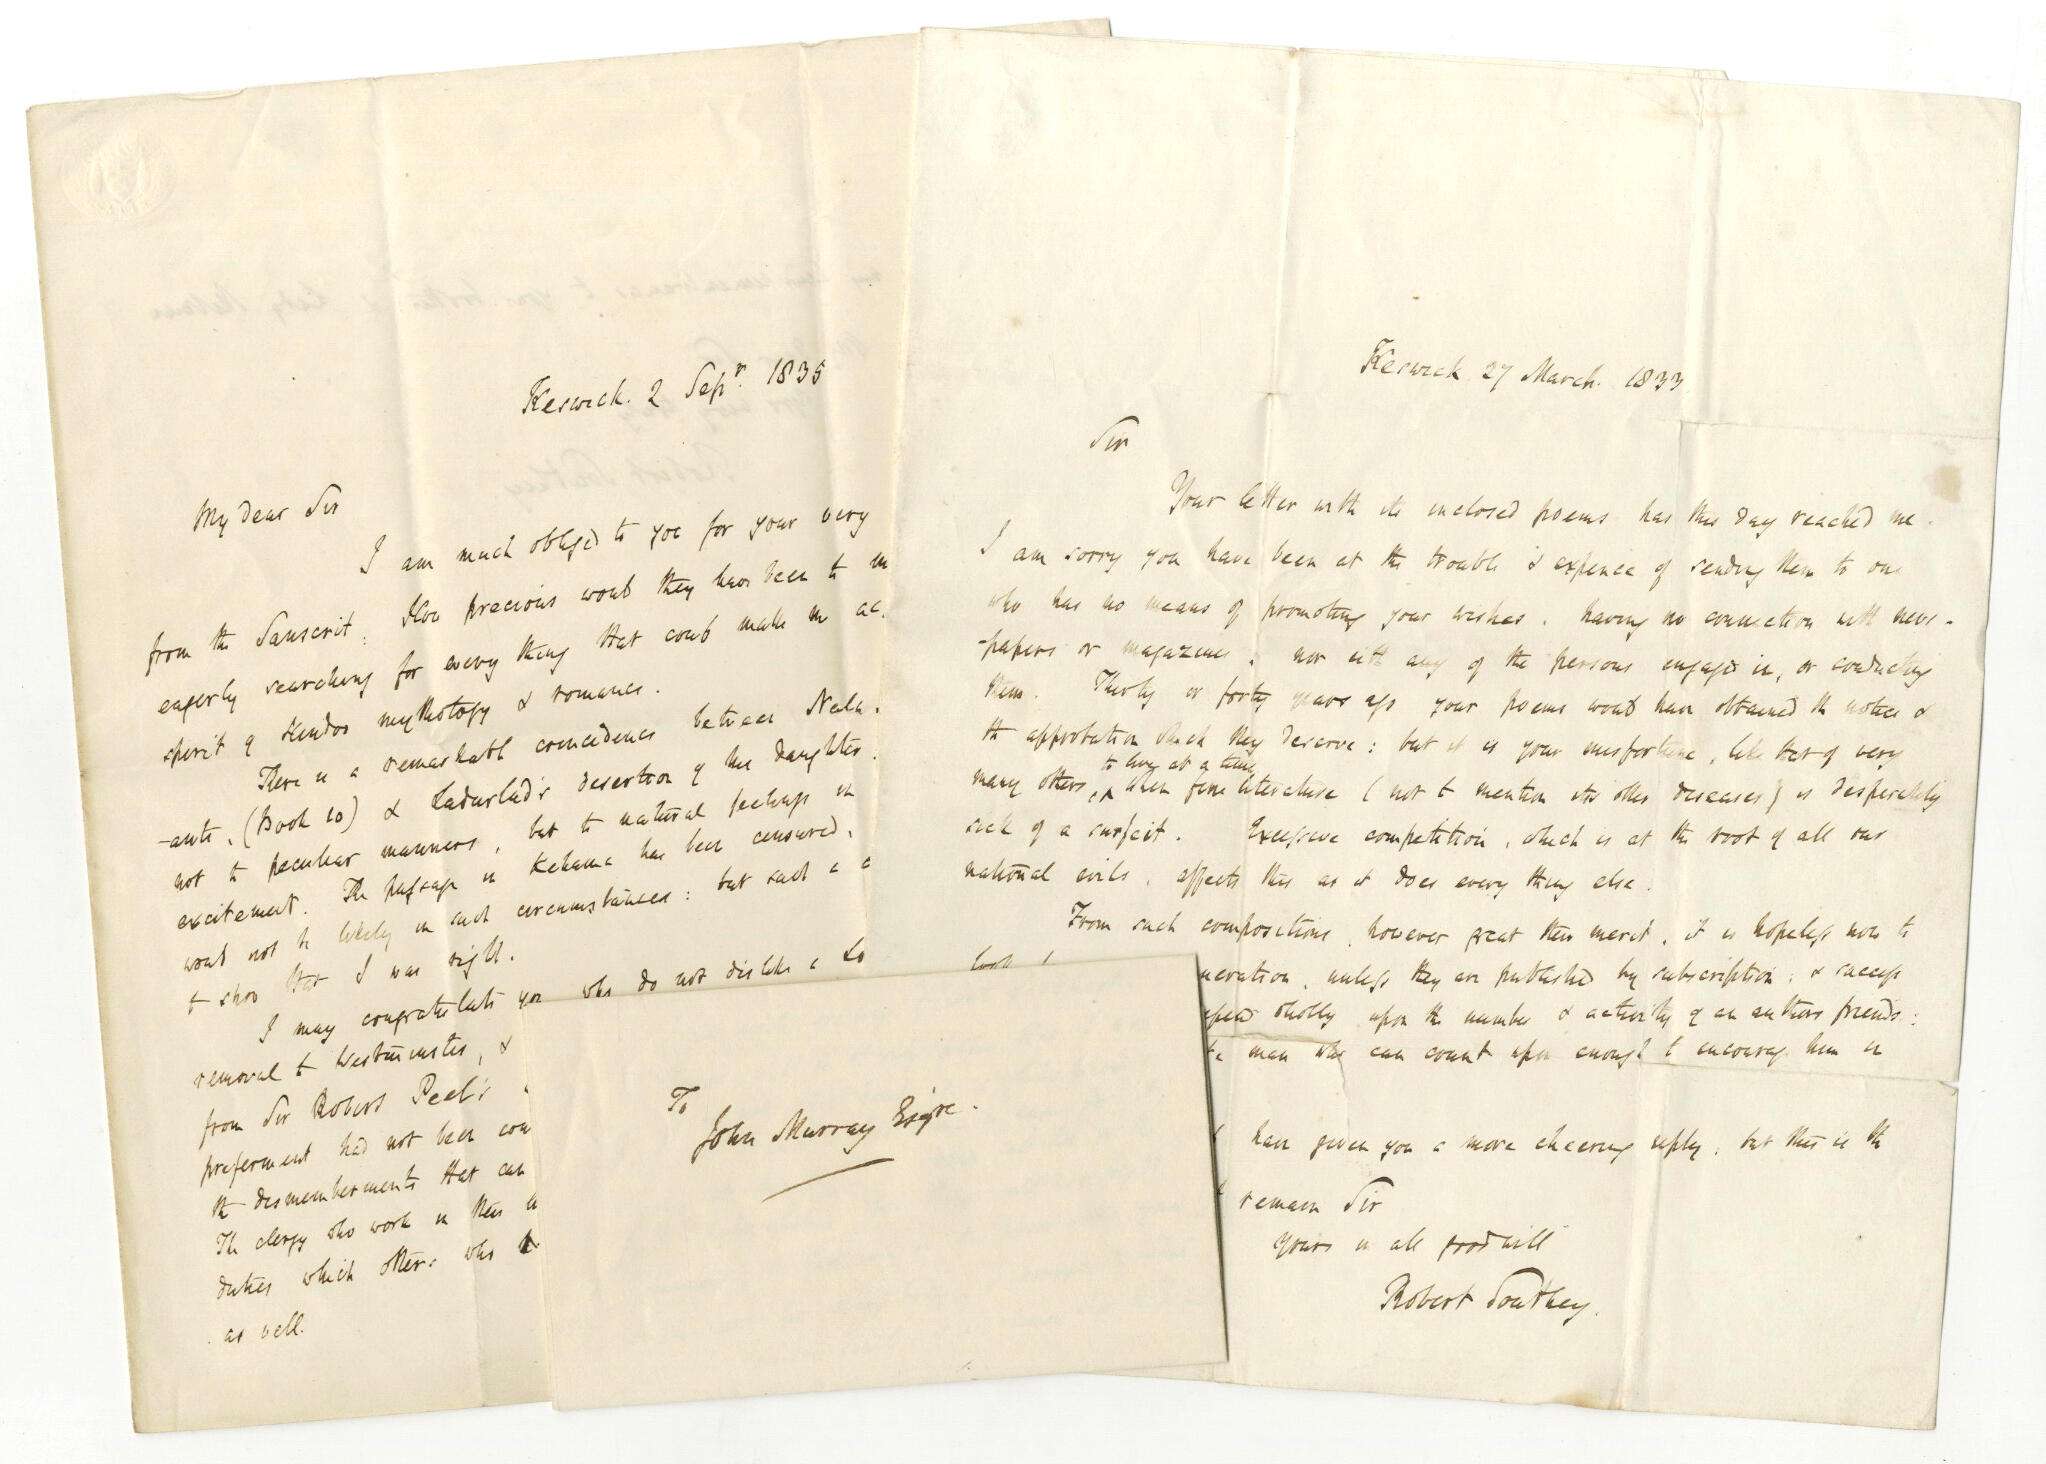 Keswick. 2 Sepr. 1835
My dear Sir
I am much obliged to you for your very
from the Sanscrit. How precious would they have been to me
eagerly searching for every thing that could make me ac
spirit of Hindoo mythology & romance.
There is a remarkable coincidence between Nala
(Book 10) & Ladurlad's desertion of his daughter.
not to peculiar manners, but to natural feelings in
excitement. The passage in Kehama has been censured,
would not be likely in such circumstances: but such a c
to show that I was right.
I may congratulate you who do not dislike a Lo
removal to Westminster, &
from Sir Robert Peel's
preferment had not been con
the dismemberments that can
The clergy who work in their
duties which others who
as well.
To
John Murray Esqre.
Keswick 27 March. 1833
Sir
Your letter with its inclosed poems has this day reached me.
I am sorry you have been at the trouble & expence of sending them to one
who has no means of promoting your wishes, having no connection with news-
-papers or magazines, nor with any of the persons engaged in, or conducting
them. Thirty or forty years ago your poems would have obtained the notice &
the approbation which they deserve: but it is your misfortune, like that of very
many others, to live at a time when fine literature (not to mention its other diseases) is desperately
sick of a surfeit. Excessive competition, which is at the root of all our
national evils, affects this as it does every thing else.
From such compositions, however great their merit, it is hopeless now to
look
neration, unless they are published by subscription; & success
epend wholly upon the number & activity of an authors friends:
the man who can count upon enough to encourage him in
have given you a more cheering reply, but this is the
remain Sir
Yours in all goodwill
Robert Southey.